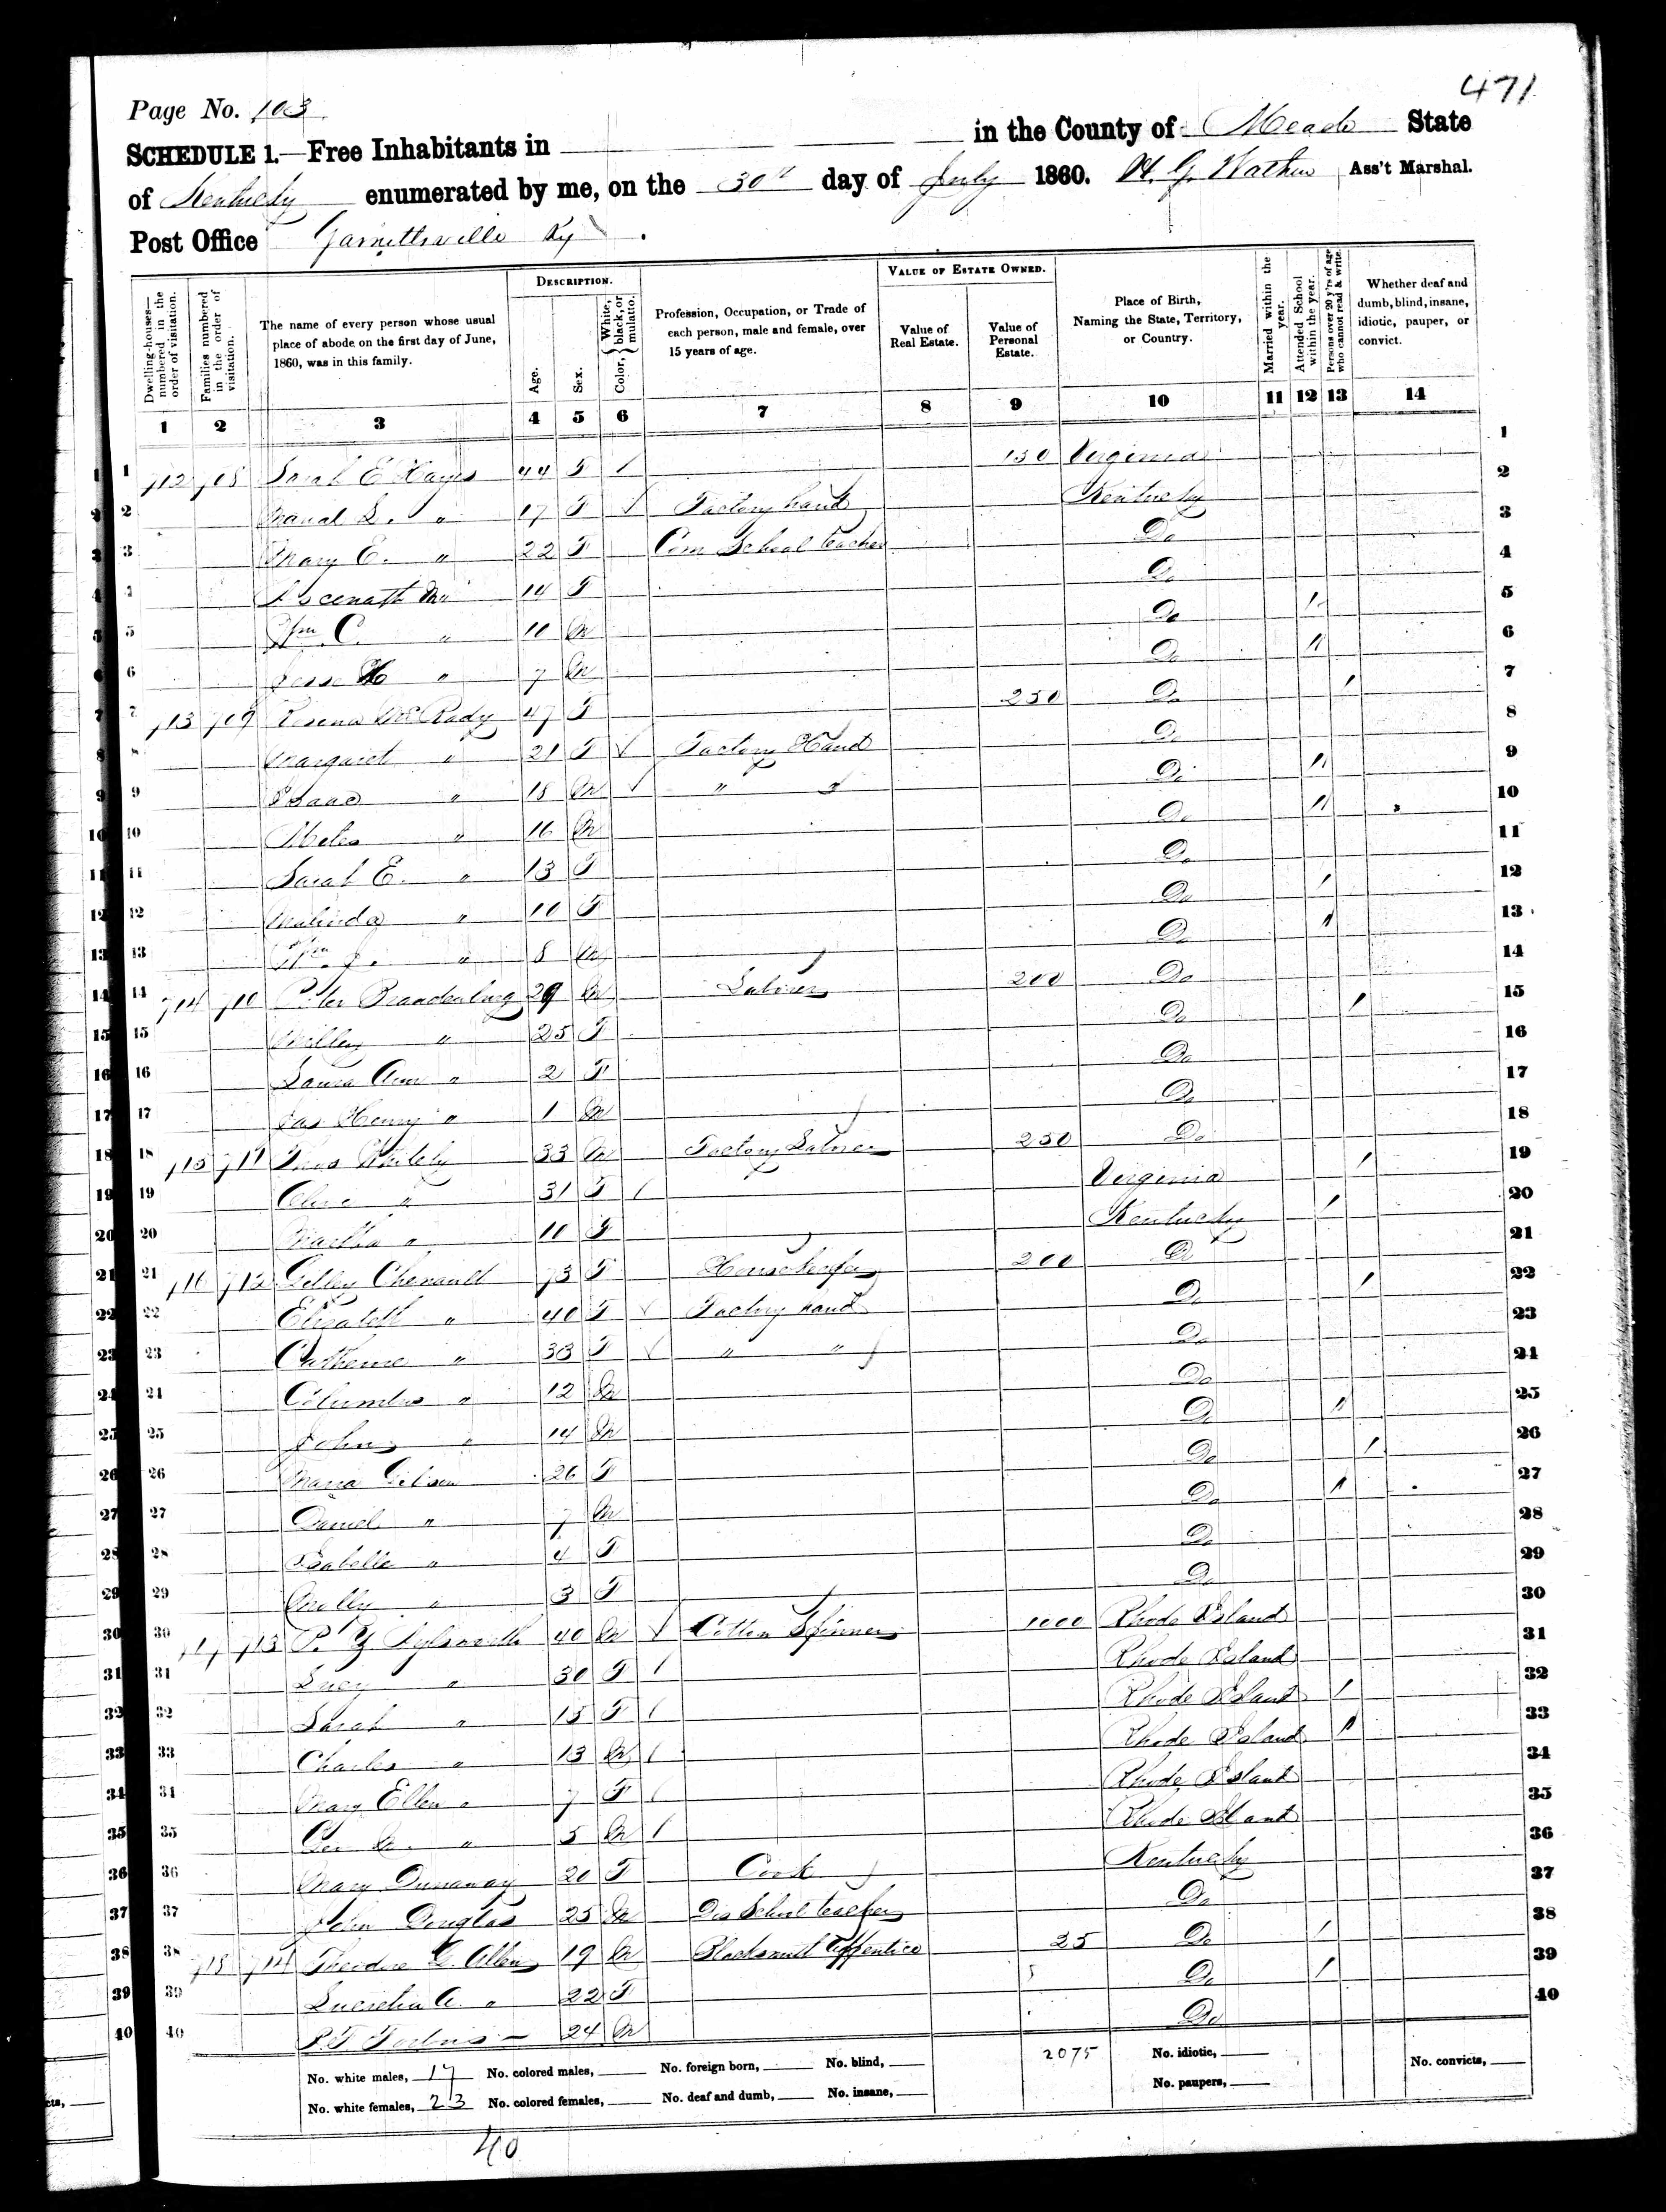 471
Page No. 103
SCHEDULE 1.—Free Inhabitants in in the County of Meade State
of Kentucky enumerated by me, on the 30th day of July 1860. Ass't Marshal.
Post Office Garnettsville Ky
Dwelling-houses—numbered in the order of visitation.
Families numbered in the order of visitation.
The name of every person whose usual place of abode on the first day of June, 1860, was in this family.
DESCRIPTION.
Age.
Sex.
Color, { White, black, or mulatto.
Profession, Occupation, or Trade of each person, male and female, over 15 years of age.
VALUE OF ESTATE OWNED.
Value of Real Estate.
Value of Personal Estate.
Place of Birth, Naming the State, Territory, or Country.
Married within the year.
Attended School within the year.
Persons over 20 y'rs of age who cannot read & write.
Whether deaf and dumb, blind, insane, idiotic, pauper, or convict.
1 2 3 4 5 6 7 8 9 10 11 12 13 14
1 712 708 Sarah E Hays 44 F / 150 Virginia 1
2 L. " 17 F √ Factory hand Kentucky 2
3 Mary E. " 22 F Com School teacher Do 3
4 14 F Do 4
5 Wm C. " 10 M Do / 5
6 Jesse H " 7 M Do 1 6
7 713 709 McRady 47 F 250 Do / 7
8 Margaret " 21 F √ Factory Hand Do 8
9 Isaac " 18 M √ " " Do 1 9
10 " 16 M Do 1 10
11 Sarah E. " 13 F Do 11
12 Malinda " 10 F Do / 12
13 Wm J. " 8 M Do 1 13
14 714 710 Brandenburg 29 M Laborer 200 Do 14
15 Milley " 25 F Do / 15
16 Laura Ann " 2 F Do 16
17 Jas Henry " 1 M Do 17
18 715 711 33 M Factory Laborer 250 Do 18
19 " 31 F / Virginia / 19
20 Martha " 10 F Kentucky / 20
21 716 712 Chenault 73 F Housekeeper 200 Do 21
22 Elizabeth " 40 F √ Factory hand Do / 22
23 Catherine " 33 F √ " " Do 23
24 Columbus " 12 M Do 24
25 John " 14 M Do 1 25
26 Maria Gibson 26 F Do / 26
27 Daniel " 7 M Do 1 27
28 Isabella " 4 F Do 28
29 Molly " 3 F Do 29
30 717 713 40 M √ Cotton Spinner 1000 Rhode Island 30
31 Lucy " 30 F / Rhode Island 31
32 Sarah " 15 F / Rhode Island / 32
33 Charles " 13 M / Rhode Island 1 33
34 Mary Ellen " 7 F / Rhode Island 34
35 Geo " 5 M / Rhode Island 35
36 Mary Dunaway 20 F Cook Kentucky 36
37 John Douglas 25 M Dis School teacher Do 37
38 718 714 Theodore Allen 19 M Blacksmith Apprentice 25 Do / 38
39 Lucretia A. " 22 F Do / 39
40 24 M Do 40
No. white males, 17 No. colored males, No. foreign born, No. blind, 2075 No. idiotic, No. convicts,
No. white females, 23 No. colored females, No. deaf and dumb, No. insane, No. paupers,
40